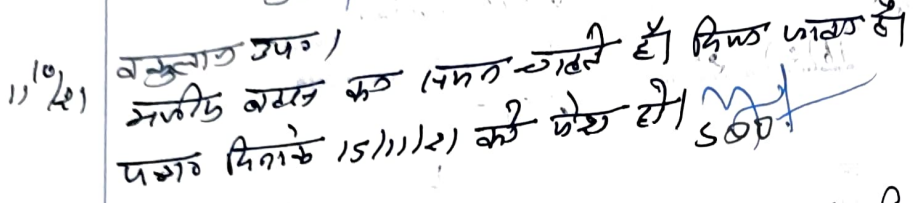 11/10/21
वकुलान उप०।
मजीद बहस का समय चाहते हैं। दिया जाता है।
पत्रा० दिनांक 15/11/21 को पेश हो।
SDO